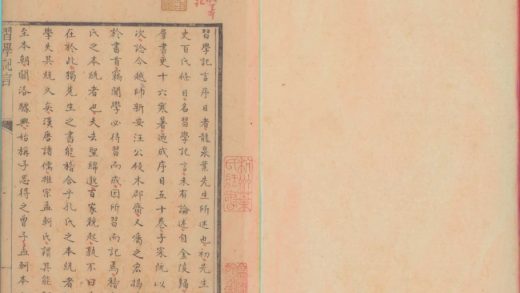 習學記言序目者龍泉葉先生所述也初先生
史百氏條目名習學記言未有論述自金陵歸
羣書更十六寒暑廼成序目五十卷子以
次諗今越帥新安汪公木郡齋又之宏揭
於書首竊聞學必待習而成因所習而記焉稽
氏之本統者也夫去聖綿邈百家競起孰不曰
在於此獨先生之書能稽合乎孔氏之本統者
學失其統久矣漢唐諸儒推宗孟軻氏謂其能
至本朝關洛驟興始稱子思得之曾子孟軻本
習學記言